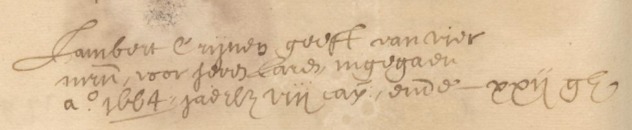 Lambert Crijnen geeft van vier
mrn̄, voor seven Jaren, ingegaen
a.º 1664, jaerlx viij cap., ende — xxij gl